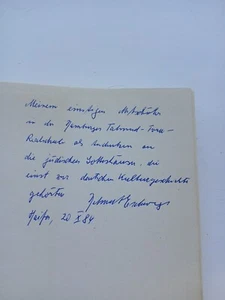 Meinem einstigen Mitschüler
in der Hamburger Talmud-Tora-
Realschule als Andenken an
die jüdischen Gotteshäuser, die
einst zur deutschen Kulturgeschichte
gehörten Helmut Eschwege
Haifa, 20 X 84